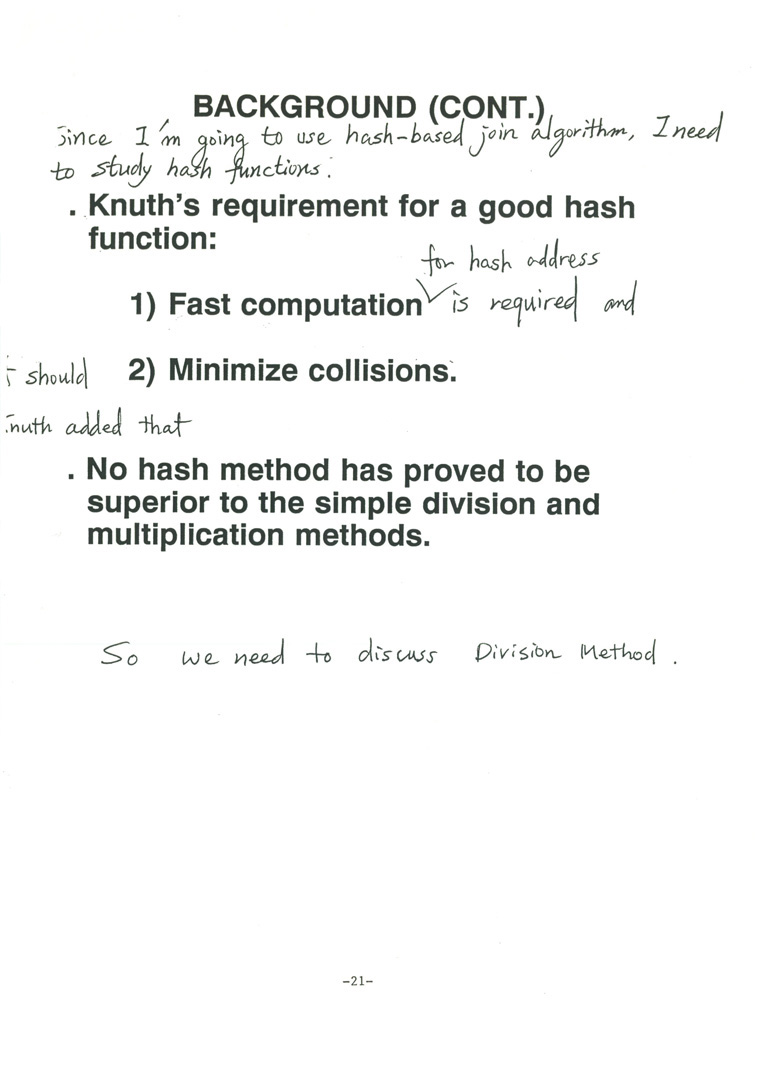 BACKGROUND (CONT.)
Since I'm going to use hash-based join algorithm, I need
to study hash functions.
. Knuth's requirement for a good hash
function:
for hash address
1) Fast computation is required and
should 2) Minimize collisions.
nuth added that
. No hash method has proved to be
superior to the simple division and
multiplication methods.
So we need to discuss Division Method.
-21-